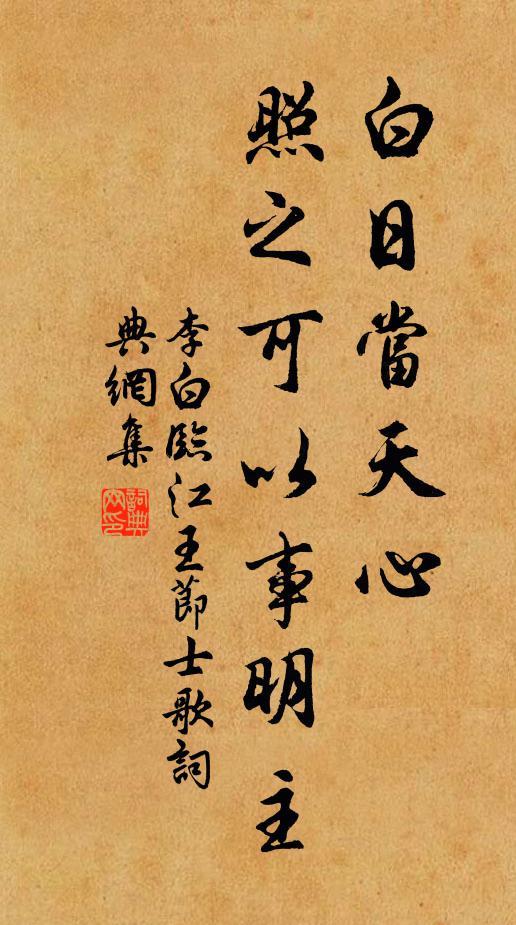 白日當天心
照之可以事明主
李白臨江王節士歌詞
典網集
詞典
网印